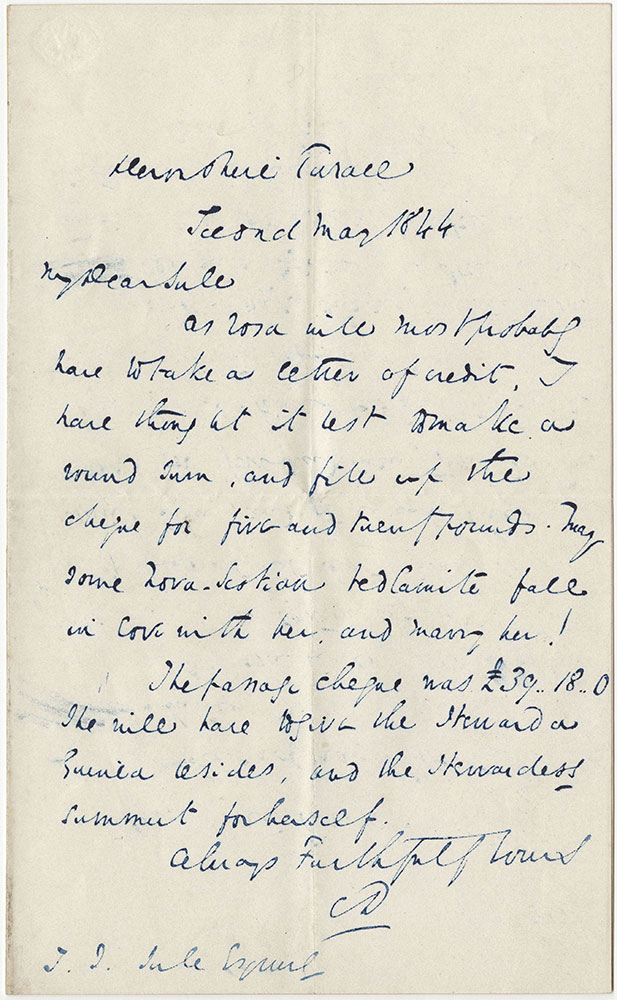 Devonshire Terrace
Second May 1844
My Dear Sule
As Rosa will most probably
have to take a letter of credit, I
have thought it best to make a
round sum, and fill up the
cheque for five and twenty pounds. May
some Nova-Scotian bedlamite fall
in love with her, and marry her!
The passage cheque was £39..18..0
She will have to give the Steward a
Guinea besides, and the Stewardess
summut for herself.
Always Faithfully Yours
CD
T. J. Sule Esquire